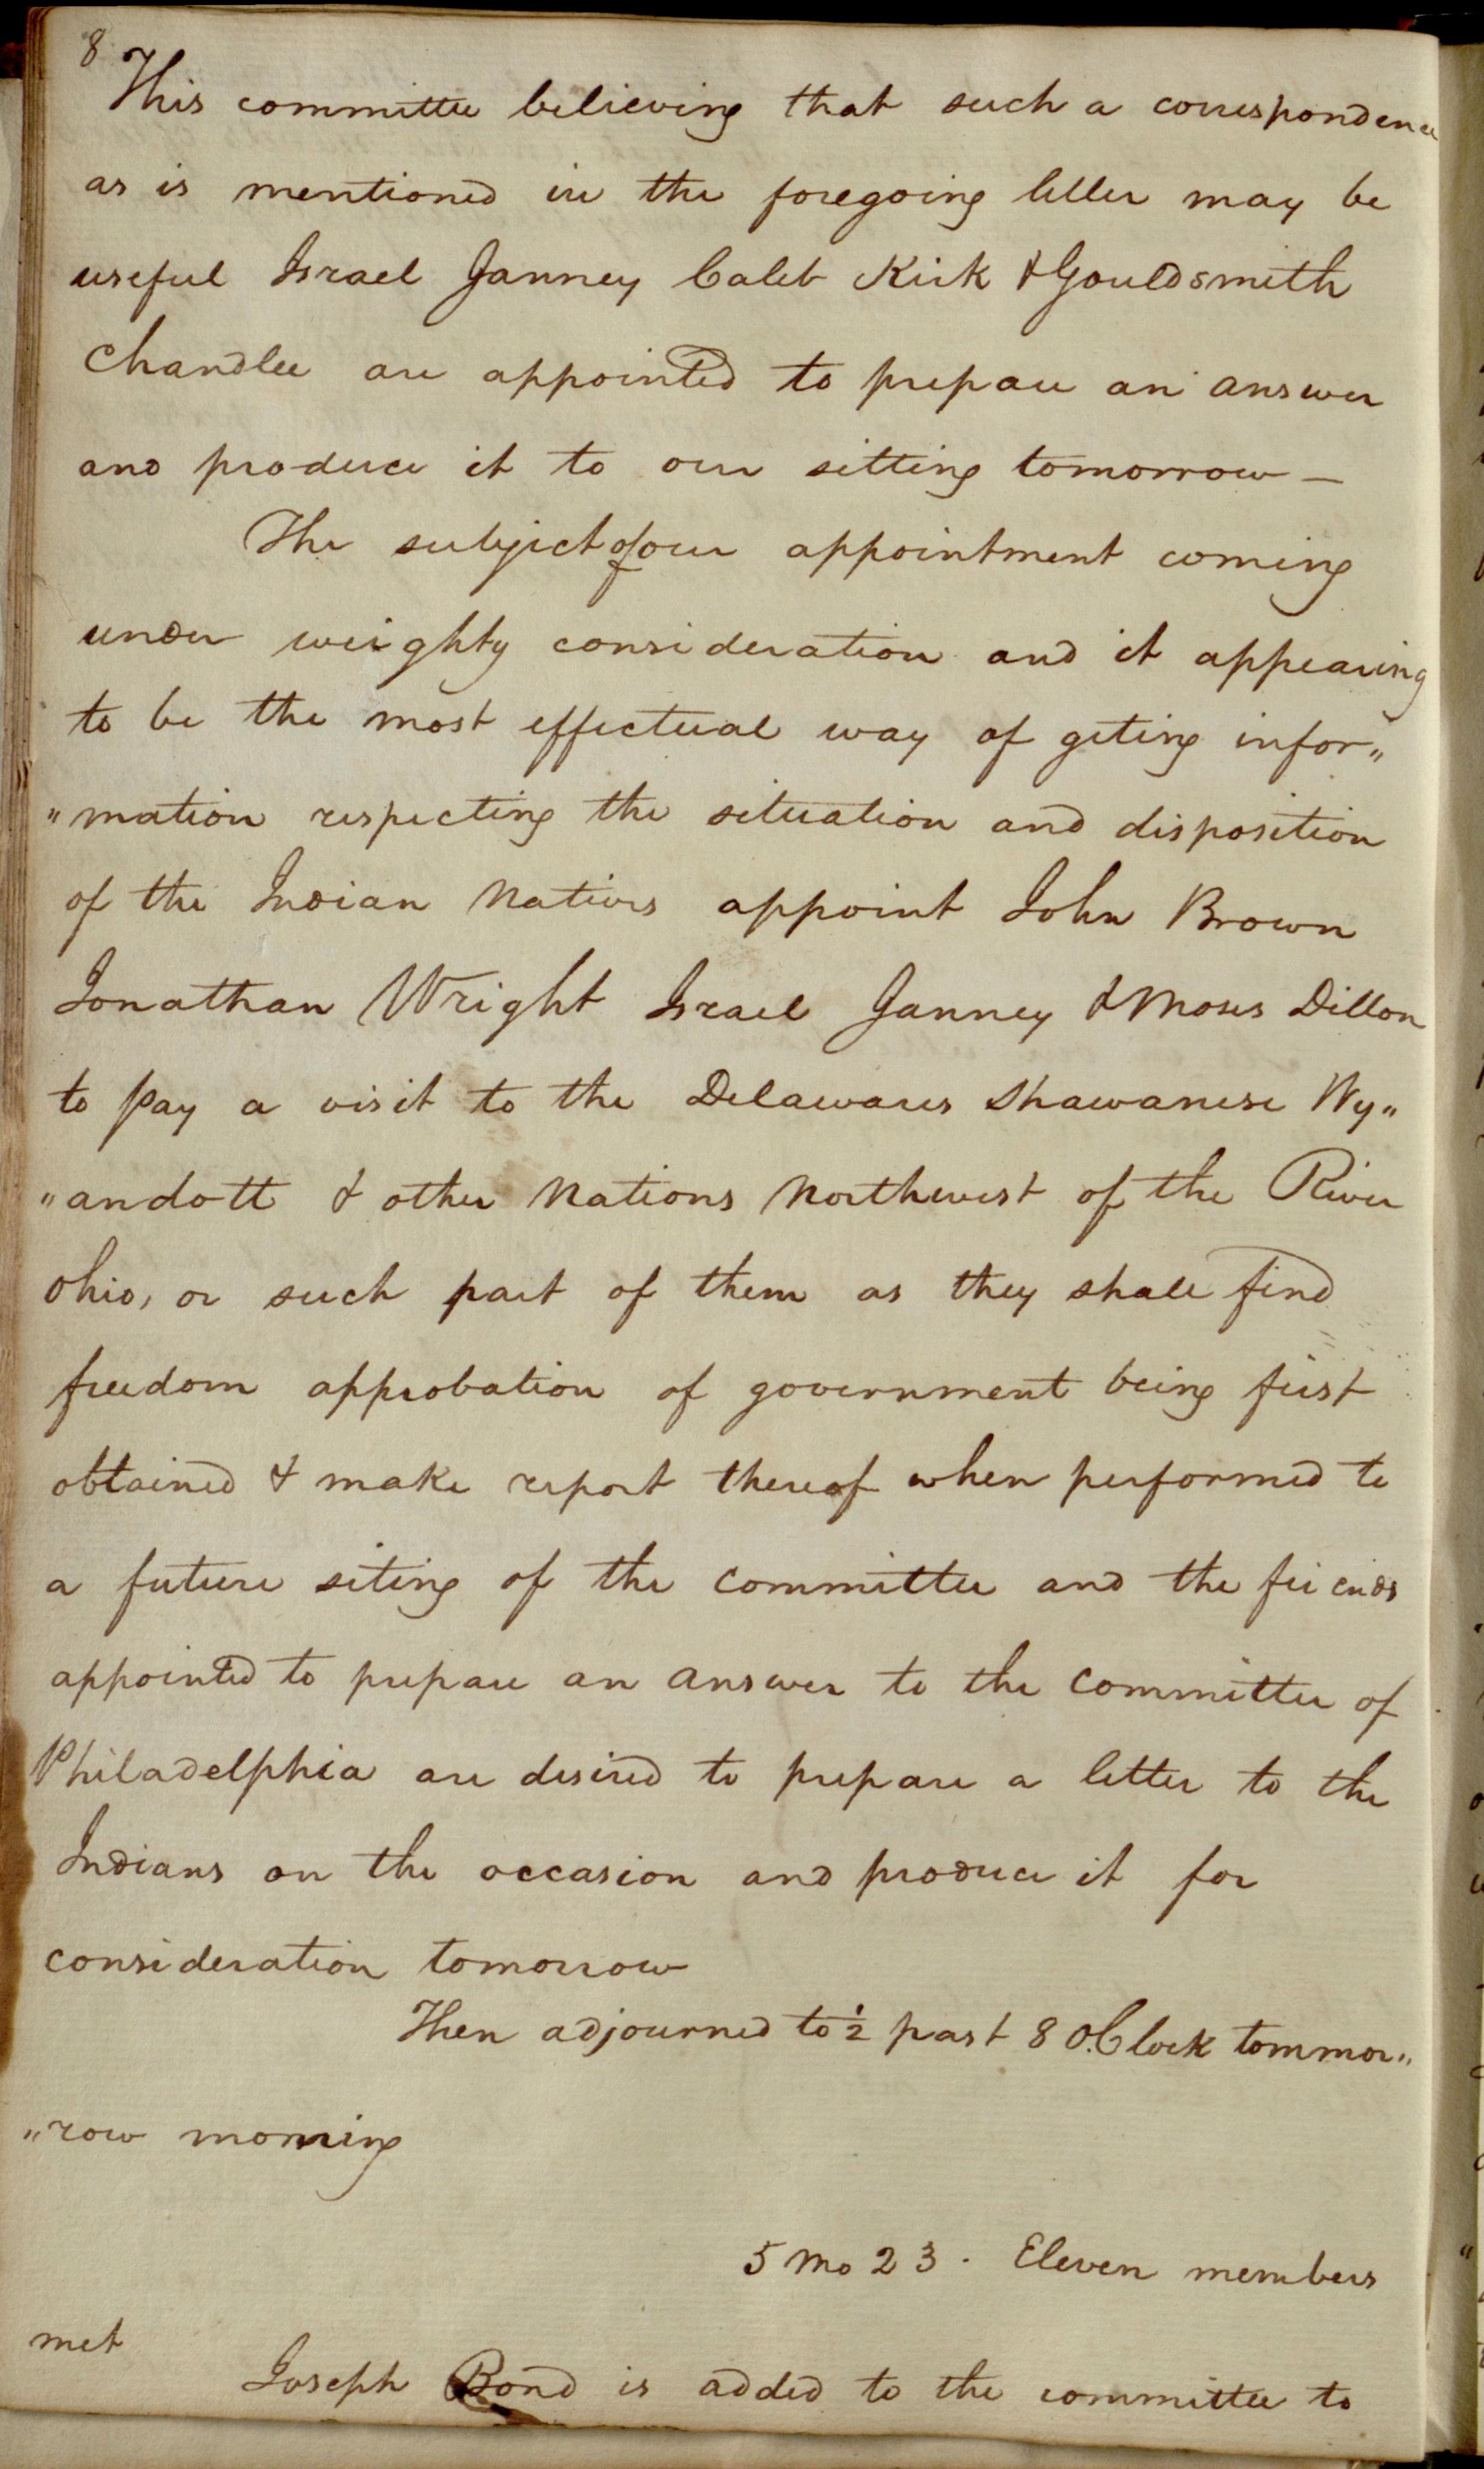 8
This committee believing that such a correspondence
as is mentioned in the foregoing letter may be
useful Israel Janney Caleb Kirk & Gouldsmith
Chandlee are appointed to prepare an answer
and produce it to our sitting tomorrow —
The subject of our appointment coming
under weighty consideration and it appearing
to be the most effectual way of geting infor„
„mation respecting the situation and disposition
of the Indian Natives appoint John Brown
Jonathan Wright Israel Janney & Moses Dillon
to pay a visit to the Delawares Shawanese Wy„
„andott & other Nations Northwest of the River
Ohio, or such part of them as they shall find
freedom approbation of government being first
obtained & make report thereof when performed to
a future siting of the committee and the friends
appointed to prepare an answer to the committee of
Philadelphia are desired to prepare a letter to the
Indians on the occasion and produce it for
consideration tomorrow
Then adjourned to ½ past 8 O.Clock tommor„
„row morning
5 Mo 23. Eleven members
met
Joseph Bond is added to the committee to